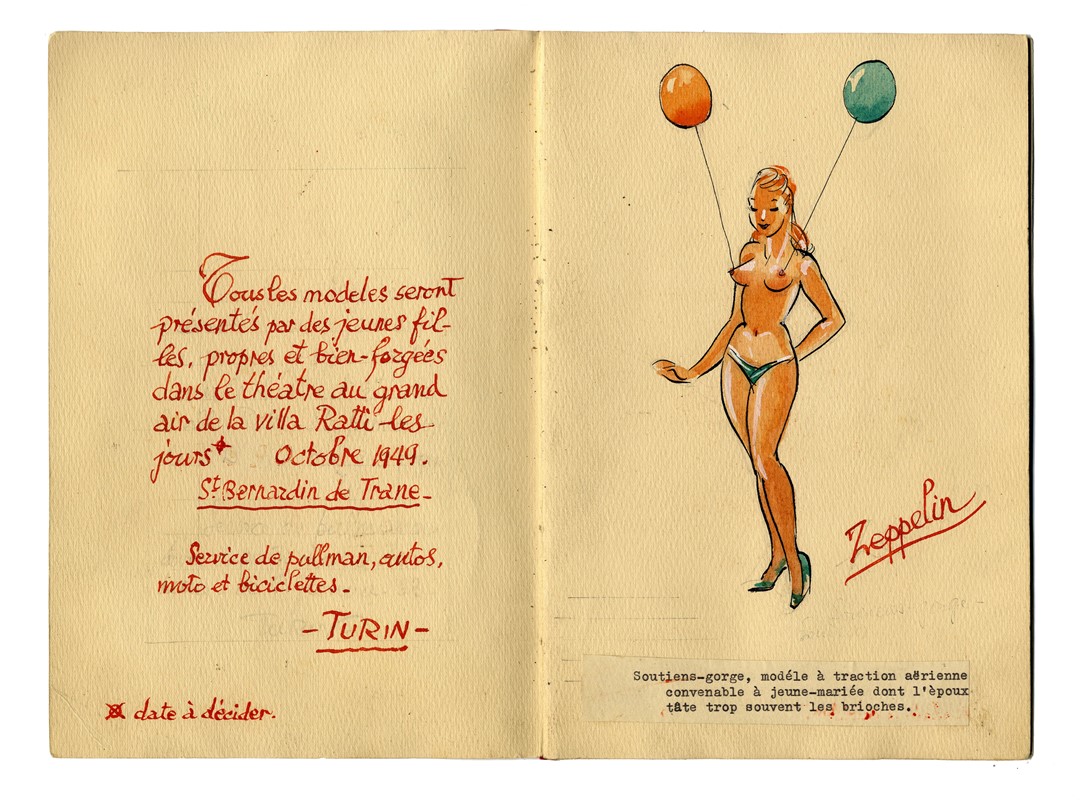 Tous les modeles seront
présentés par des jeunes fil-
les, propres et bien-forgées
dans le théatre au grand
air de la villa Ratti les
jours* Octobre 1949.
St Bernardin de Trane-
Service de pullman, autos,
moto et biciclettes-
-TURIN-
* date à décider.
Zeppelin
Soutiens-gorge, modéle à traction aërienne
convenable à jeune-mariée dont l'èpoux
tâte trop souvent les brioches.